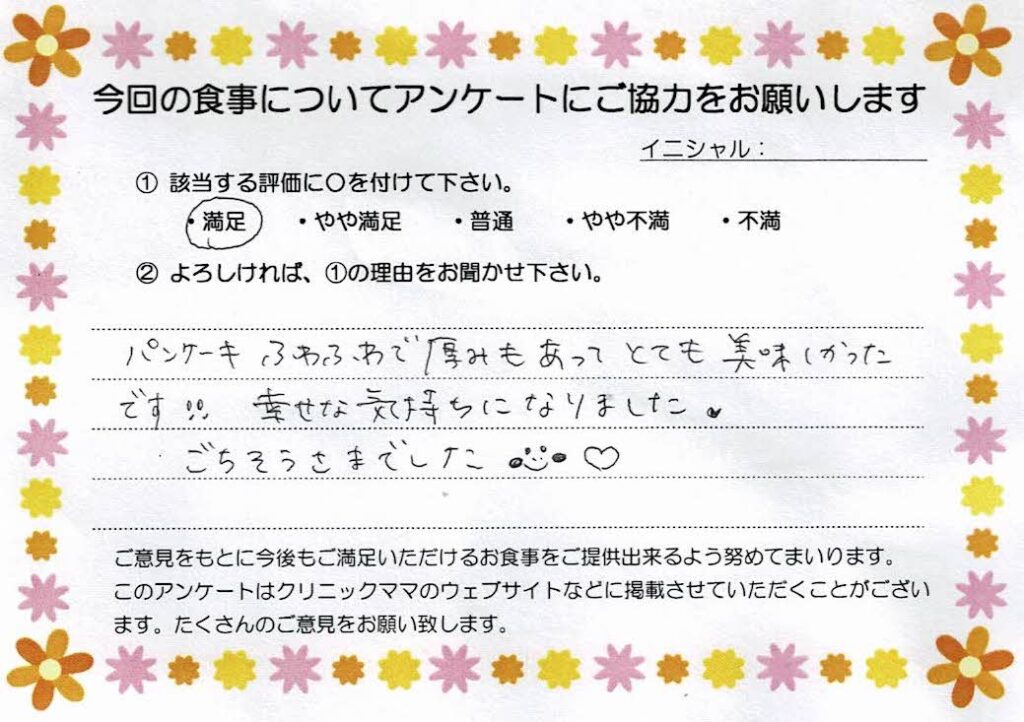 今回の食事についてアンケートにご協力をお願いします
イニシャル：
① 該当する評価に〇を付けて下さい。
・満足　・やや満足　・普通　・やや不満　・不満
② よろしければ、①の理由をお聞かせ下さい。
パンケーキ ふわふわで厚みもあってとても美味しかった
です!!! 幸せな気持ちになりました
ごちそうさまでした ♡
ご意見をもとに今後もご満足いただけるお食事をご提供出来るよう努めてまいります。
このアンケートはクリニックママのウェブサイトなどに掲載させていただくことがござい
ます。たくさんのご意見をお願い致します。